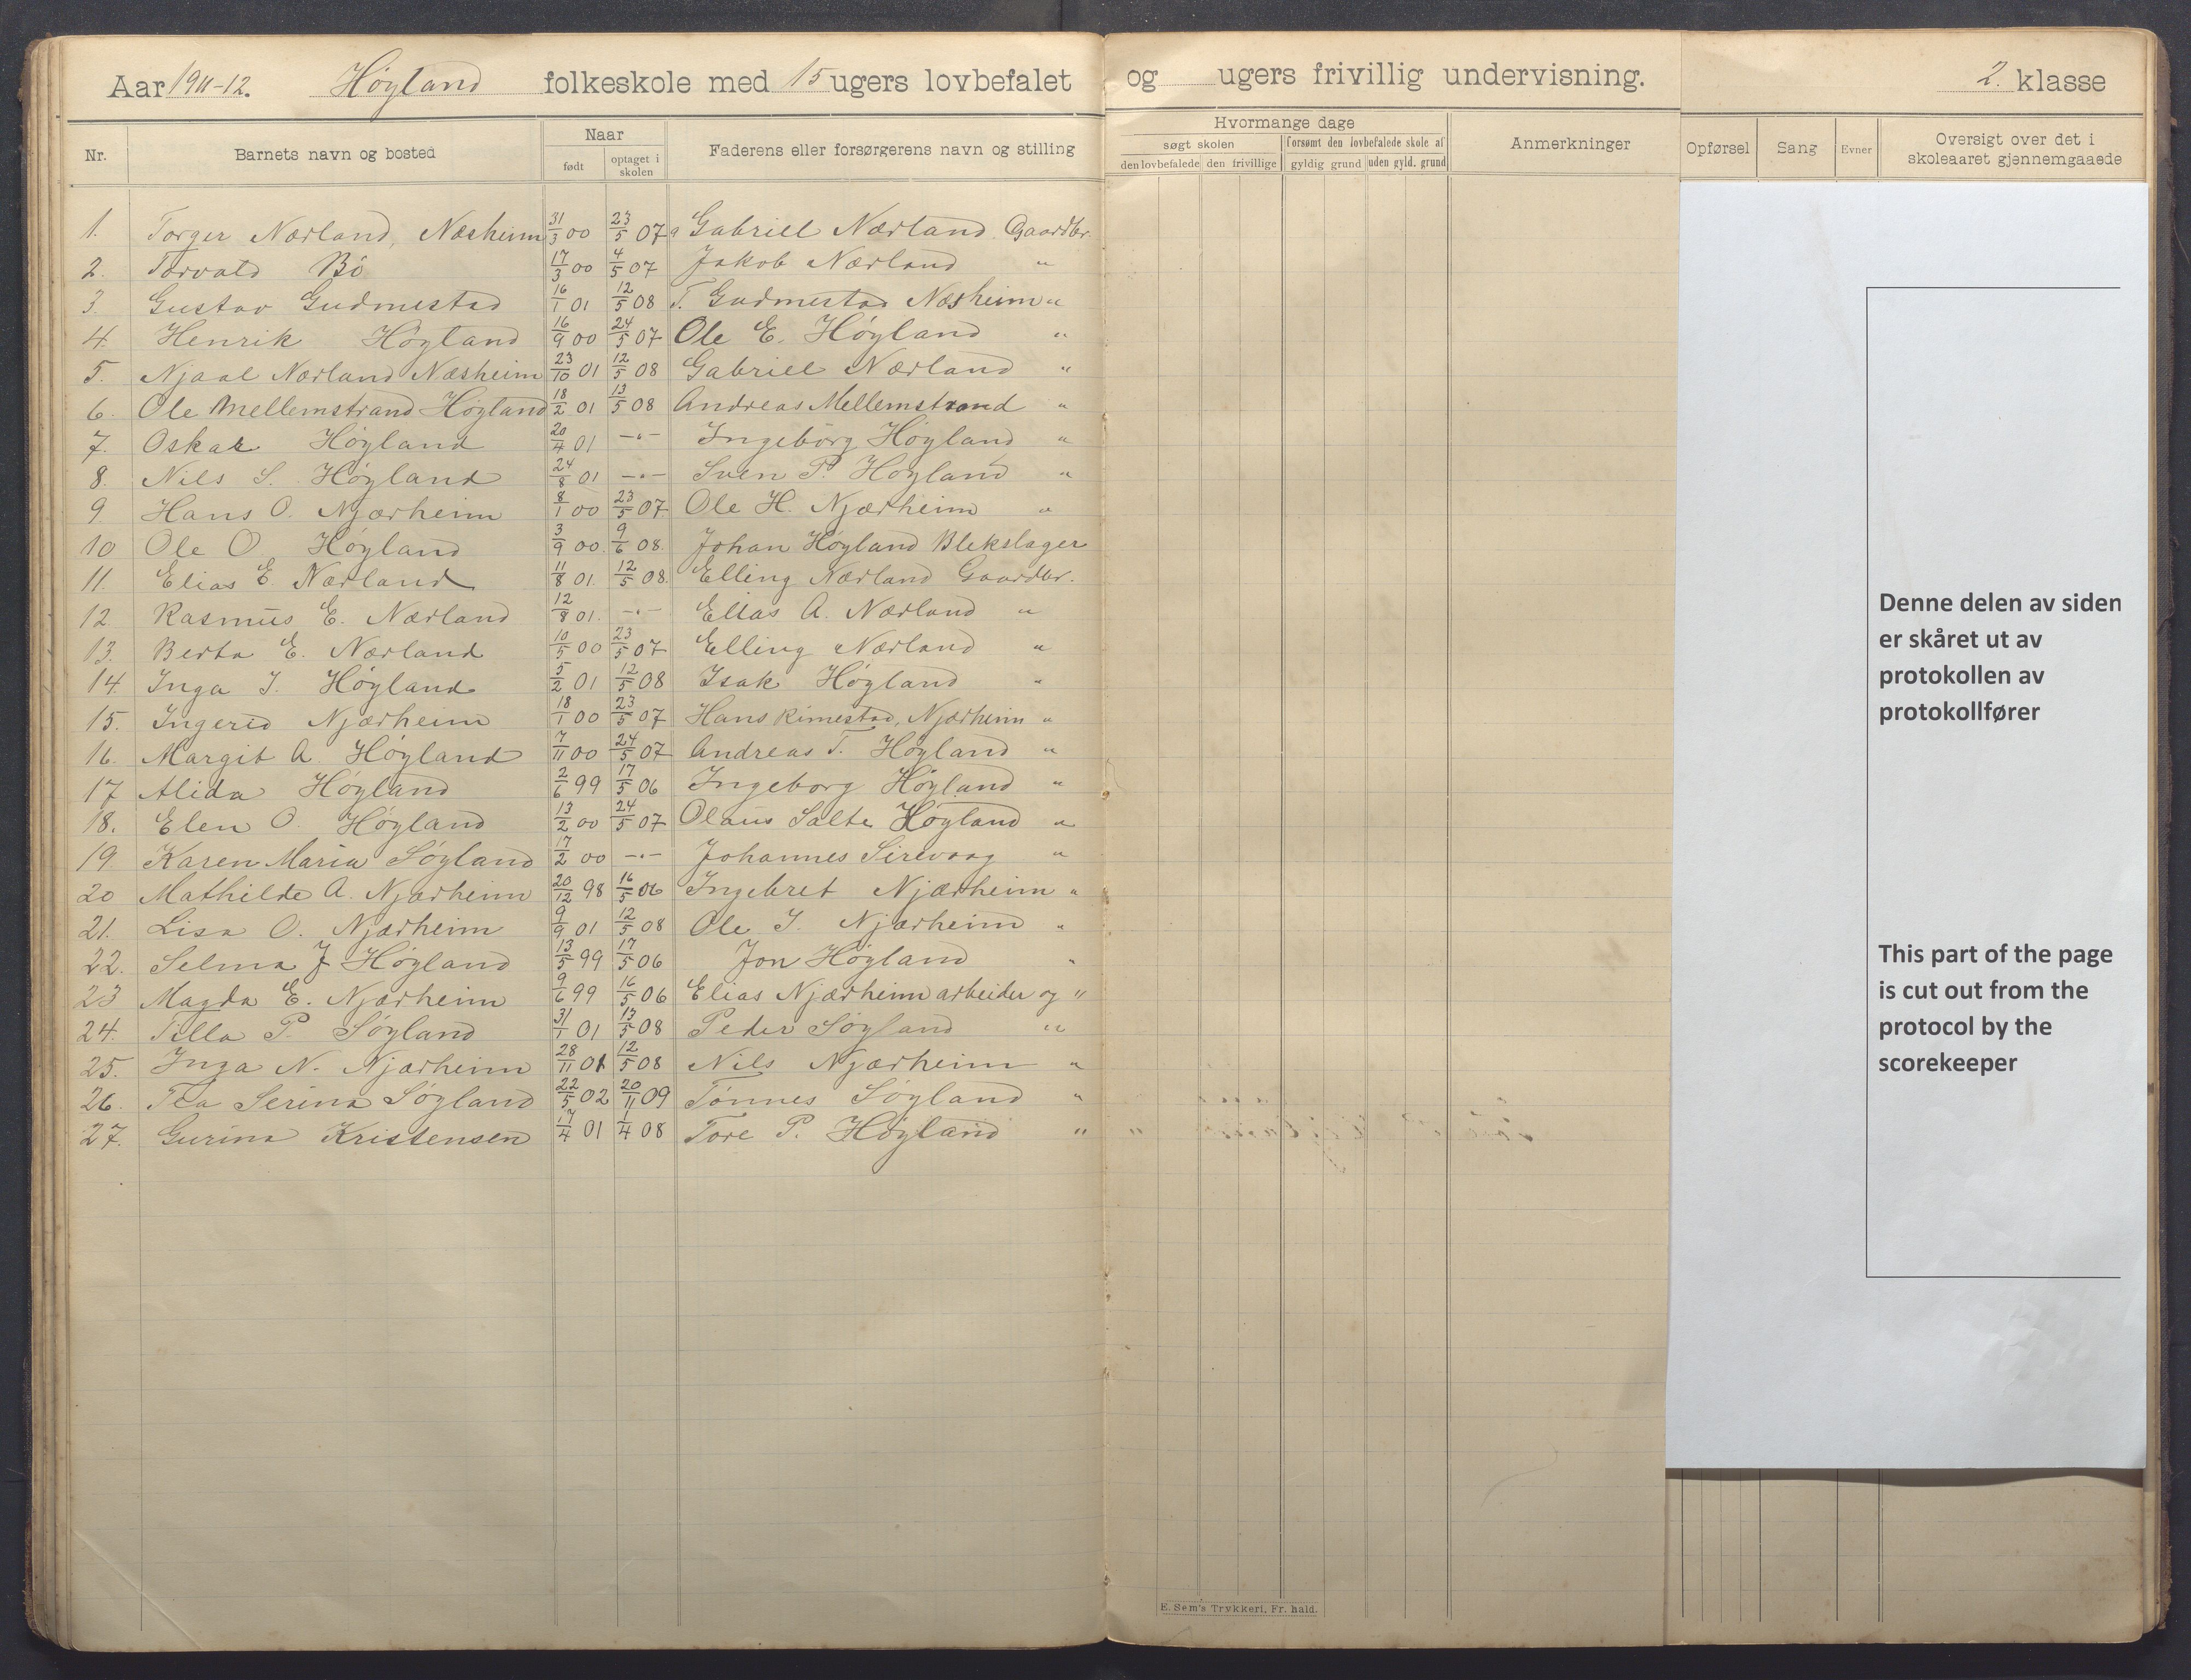 Aar 1911-12. Høyland folkeskole med 15 ugers lovbefalet og ugers frivillig undervisning. 2. klasse
Nr. Barnets navn og bosted Naar født optaget i skolen Faderens eller forsørgerens navn og stilling Hvormange dage søgt skolen den lovbefalede den frivillige forsømt den lovbefalede skole af gyldig grund uden gyld. grund Anmerkninger Opførsel Sang Evner Oversigt over det i skoleaaret gjennemgaaede
1. Torger Nærland, Næsheim 31/3 00 23/5 07 Gabriel Nærland Gaardbr.
2. Torvald Bö 17/3 00 4/5 07 Jakob Nærland "
3. Gustav Gudmestad 16/1 01 12/5 08 T. Gudmestad Næsheim "
4. Henrik Høyland 16/9 00 24/5 07 Ole E. Høyland "
5. Njaal Nærland Næsheim 23/10 01 12/5 08 Gabriel Nærland "
6. Ole Mellemstrand Høyland 18/2 01 13/5 08 Andreas Mellemstrand "
7. Oskar Høyland 20/4 01 -"- Ingeborg Høyland "
8. Nils S. Høyland 24/8 01 -"- Sven P. Høyland "
9. Hans O. Njærheim 8/1 00 23/5 07 Ole H. Njærheim "
10 Ole O. Høyland 3/9 00. 9/6 08. Johan Høyland Blekslager
11. Elias E. Nærland 11/8 01. 12/5 08. Elling Nærland Gaardbr.
12 Rasmus E. Nærland 12/8 01. -"- Elias A. Nærland "
13. Berta E. Nærland 10/5 00 23/5 07 Elling Nærland "
14. Inga I. Høyland 5/2 01 12/5 08 Isak Høyland "
15. Ingerid Njærheim 18/1 00 23/5 07 Hans Rimestad, Njærheim "
16. Margit A. Høyland 7/11 00 24/5 07 Andreas T. Høyland "
17 Alida Høyland 2/6 99 17/5 06 Ingeborg Høyland "
18. Elen O. Høyland 13/2 00 24/5 07 Olaus Salte Høyland "
19. Karen Maria Søyland 17/2 00 -"- Johannes Sirevaag "
20 Mathilde A. Njærheim 20/12 98 16/5 06 Ingebret Njærheim "
21. Lisa O. Njærheim 9/9 01 12/5 08 Ole I. Njærheim "
22. Selma J Høyland 13/5 99 17/5 06 Jon Høyland "
23 Magda E. Njærheim 9/6 99 16/5 06 Elias Njærheim arbeider og "
24. Tilla P. Søyland 31/1 01 13/5 08 Peder Søyland "
25. Inga N. Njærheim 28/11 01 12/5 08 Nils Njærheim "
26. Tea Serina Søyland 22/5 02 20/11 09 Tønnes Søyland "
27. Gurina Kristensen 17/4 01 1/4 08 Tore P. Høyland "
Denne delen av siden
er skåret ut av
protokollen av
protokollfører
This part of the page
is cut out from the
protocol by the
scorekeeper
E. Sem's Trykkeri, Fr. hald.